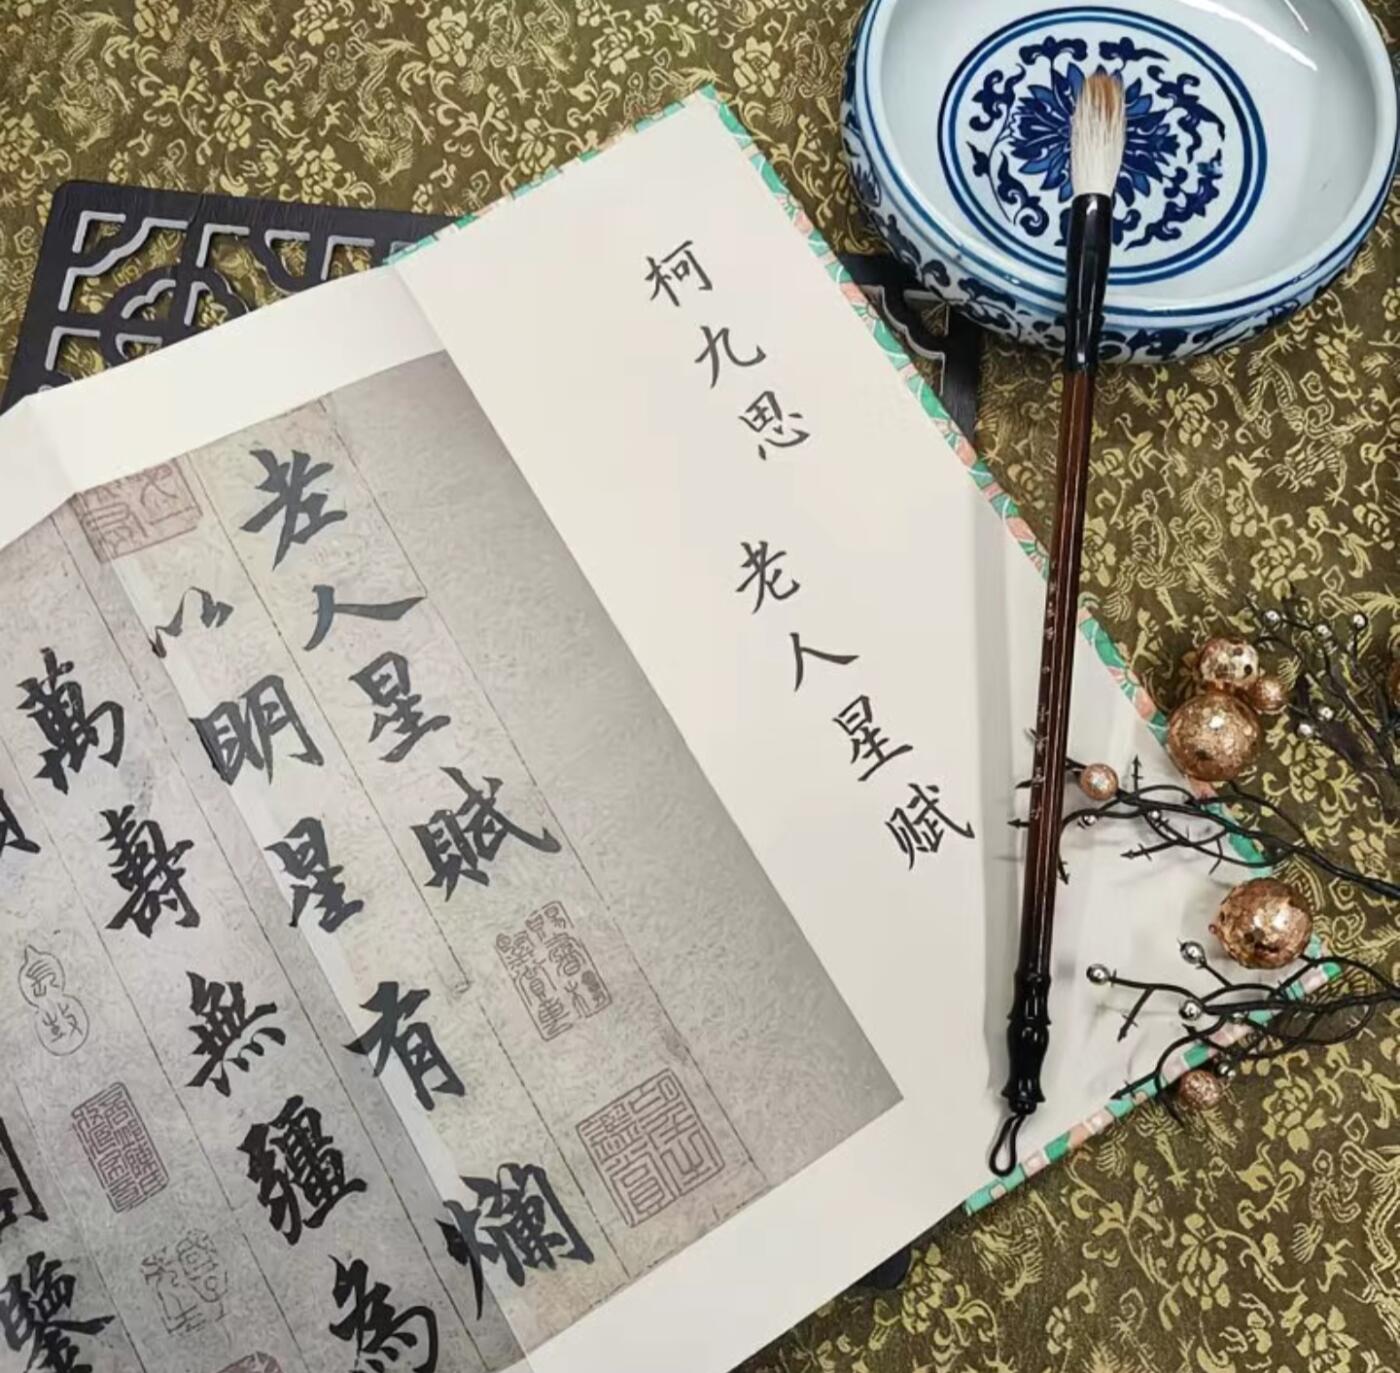 柯九思 老人星赋
老人星賦
以明星有爛
萬壽無疆為